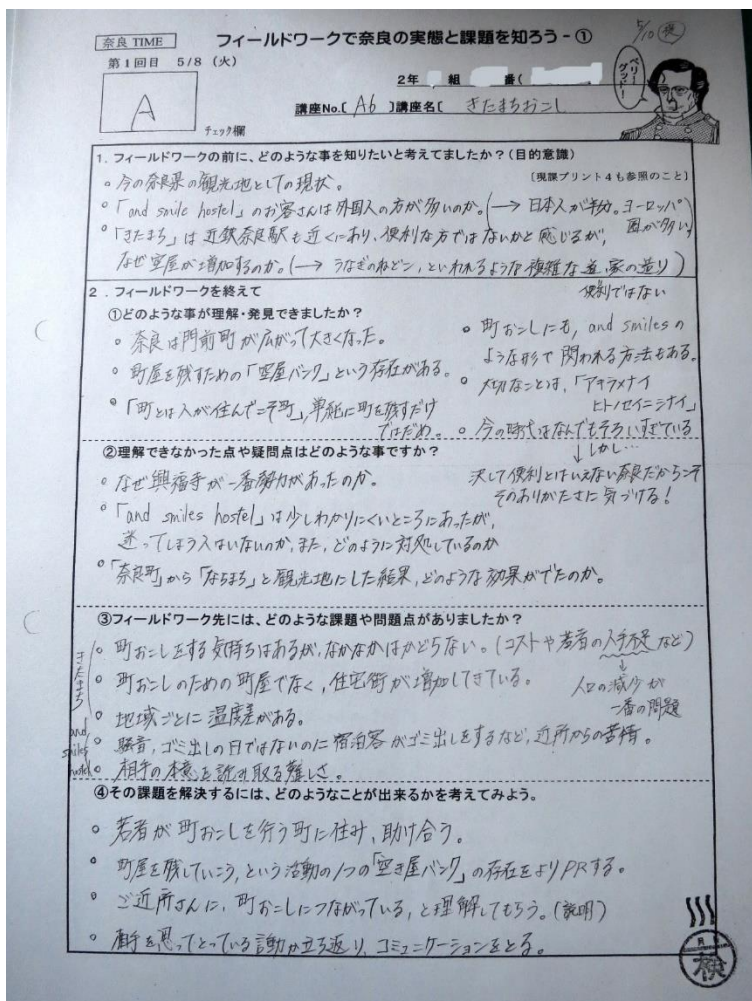 奈良 TIME
フィールドワークで奈良の実態と課題を知ろう-①
5/10
第1回目 5/8 (火)
2年 組 番(
ベリーグッ!
A
チェック欄
講座No.〔 A6 〕講座名〔 きたまちおこし
1.フィールドワークの前に、どのような事を知りたいと考えてましたか?(目的意識)
〔現課プリント4も参照のこと〕
。今の奈良県の観光地としての現状。
。「and smile hostel」のお客さんは外国人の方が多いのか。(→ 日本人が半分。ヨーロッパ圏が多い)
。「きたまち」は近鉄奈良駅も近くにあり、便利な方ではないかと感じるが、
なぜ空屋が増加するのか。(→ うなぎのねどこ、といわれるような複雑な道、家の造り)
便利ではない
2.フィールドワークを終えて
①どのような事が理解・発見できましたか?
。奈良は門前町が広がって大きくなった。
。町屋を残すための「空屋バンク」という存在がある。
。「町とは人が住んでこそ町」,単純に町を残すだけ
ではだめ。
。町おこしにも, and smilesの
ような形で関われる方法もある。
。大切なことは、「アキラメナイ
ヒトノセイニシナイ」
。今の時代はなんでもそろいすぎている
↓しかし…
決して便利とはいえない奈良だからこそ
そのありがたさに気づける!
②理解できなかった点や疑問点はどのような事ですか?
。なぜ興福寺が一番勢力があったのか。
。「and smiles hostel」は少しわかりにくいところにあったが,
迷ってしまう人はいないのか,また,どのように対処しているのか
。「奈良町」から「ならまち」と観光地にした結果,どのような効果がでたのか。
③フィールドワーク先には、どのような課題や問題点がありましたか?
きたまち
。町おこしをする気持ちはあるが,なかなかはかどらない。(コストや若者の人手不足など)
。町おこしのための町屋でなく,住宅街が増加してきている。
人口の減少が
一番の問題
。地域ごとに温度差がある。
and smiles hostel
。騒音,ゴミ出しの日ではないのに宿泊客がゴミ出しをするなど,近所からの苦情。
。相手の本意を読み取る難しさ。
④その課題を解決するには、どのようなことが出来るかを考えてみよう。
。若者が町おこしを行う町に住み,助け合う。
。町屋を残していこう,という活動の1つの「空き屋バンク」の存在をよりPRする。
。ご近所さんに,町おこしにつながっている,と理解してもらう。(説明)
。相手を思ってとっている言動か立ち返り,コミュニケーションをとる。
検